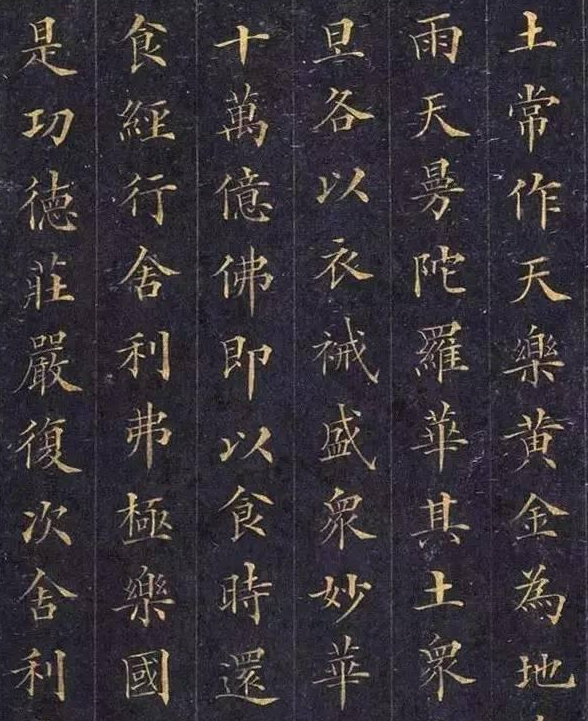 土常作天樂黃金為地
雨天曼陀羅華其土衆
旦各以衣祴盛衆妙華
十萬億佛即以食時還
食經行舍利弗極樂國
是功德莊嚴復次舍利